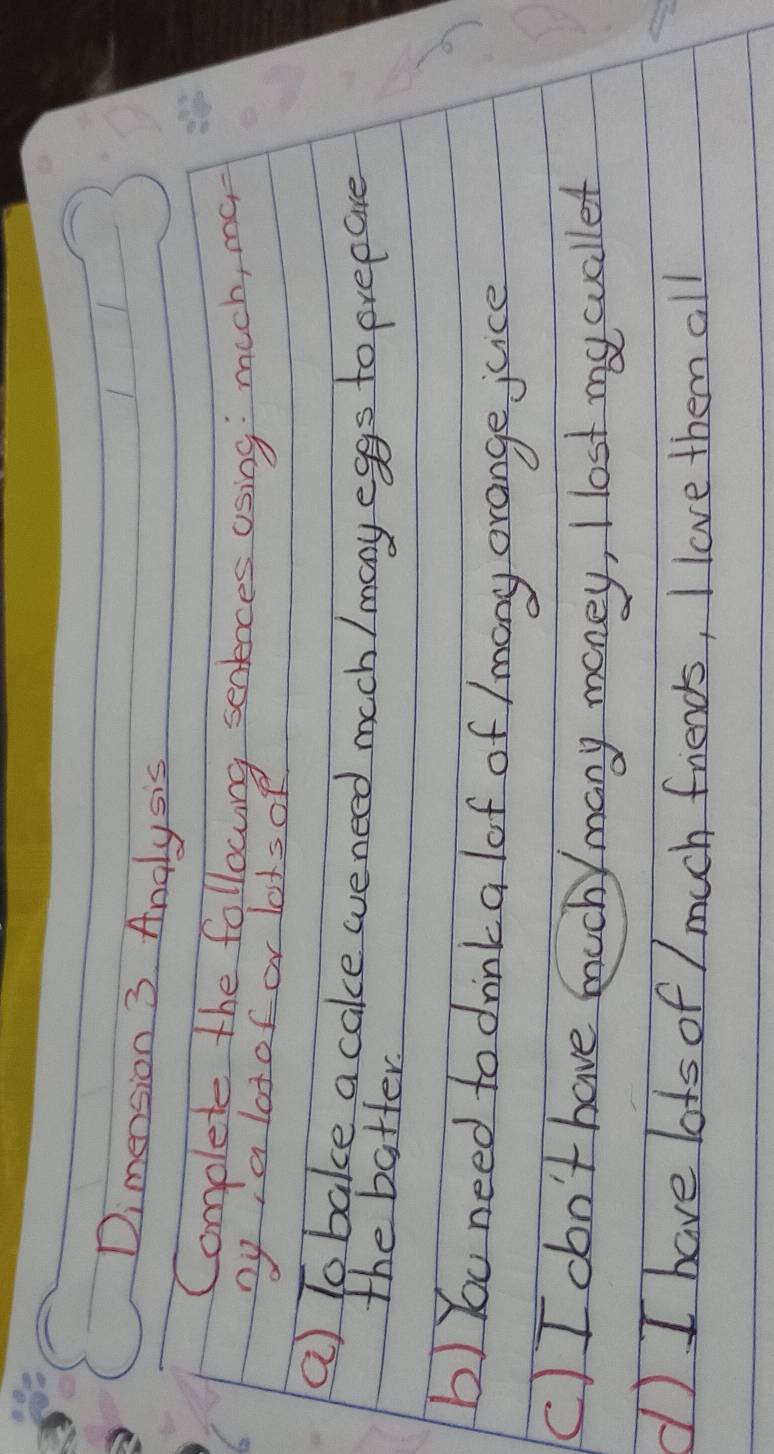 Dimension 3 Analysis
Complete the following sentences using: much, ma-
ny, a lot of or lots of
a) To bake a cake we need much/many eggs to prepare
the batter.
b) You need to drink a lot of/many orange juice
c) I don't have much/many money, I lost my wallet
d) I have lots of/much friends, I love them all